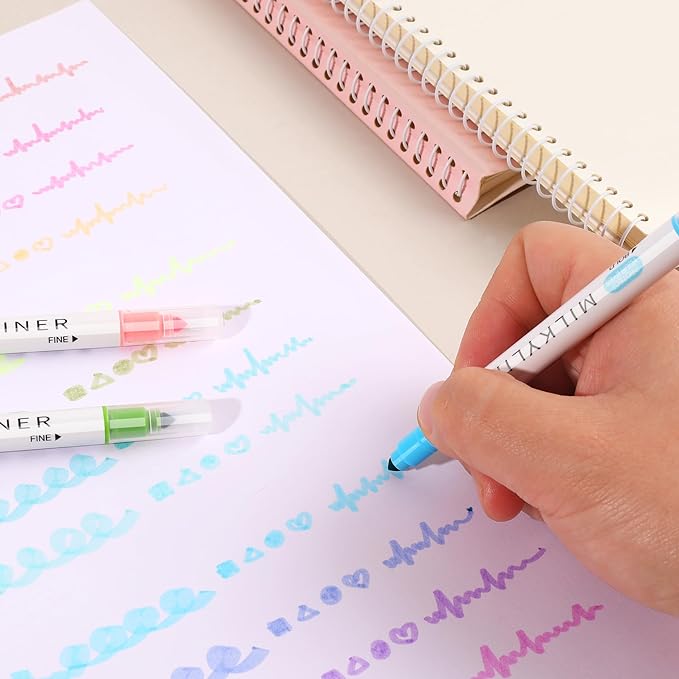 BOLD
MILKYLI
INER
FINE ▶
NER
FINE ▶